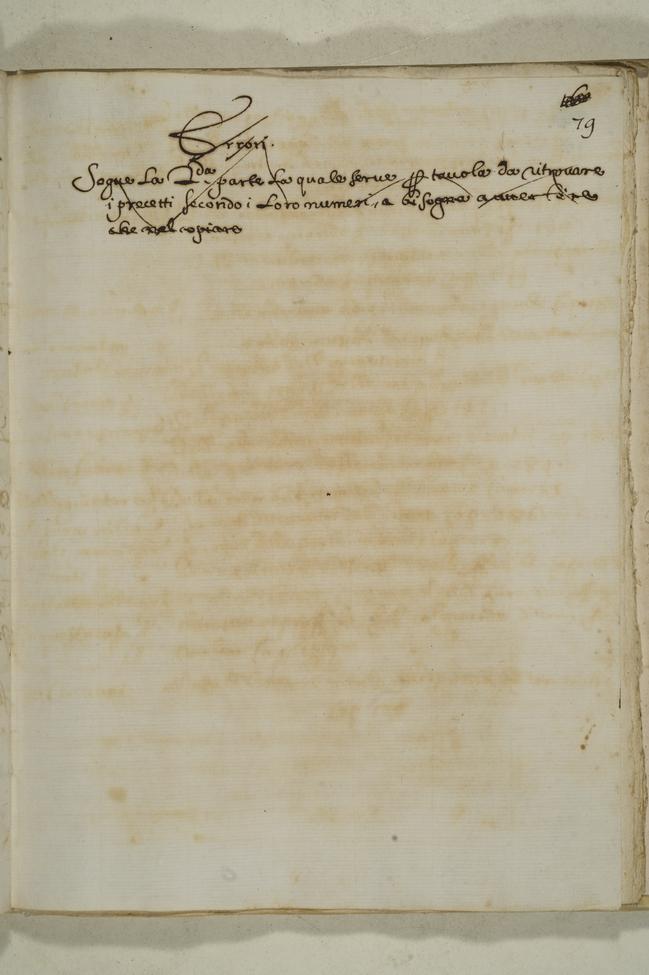 79
Errori.
Segue La 2da. parte La quale serue per tauola da ritrouare
i precetti secondo i Loro numeri, e bisogna auuertire
che nel copiare